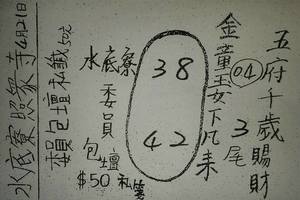 五府千歲賜財
3尾
金童玉女下凡來
04
38
42
水底寮
委員
包壇
$50 私簽
委員包壇私籤50元
水底寮照眾寺4月21日